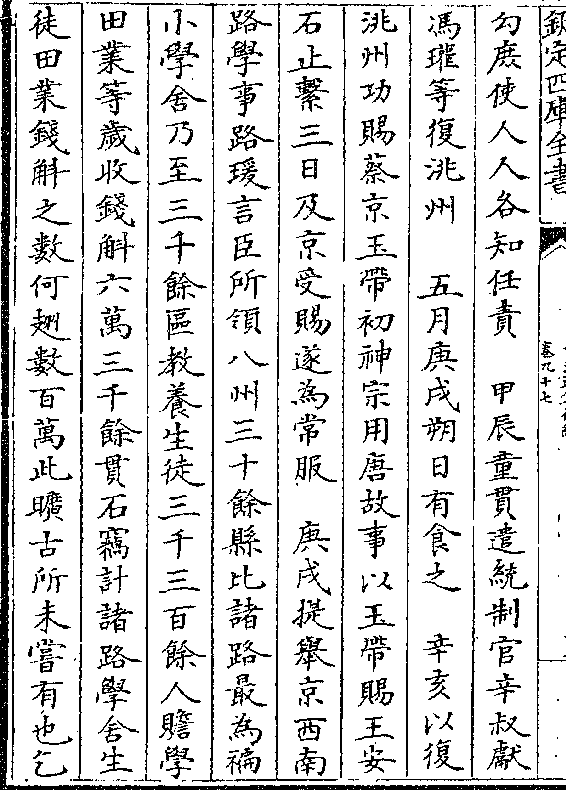 欽定四庫全書
卷九十七
勾庶使人人各知任責　甲辰童貫遣統制官辛叔獻
馮瓘等復洮州　五月庚戌朔日有食之　辛亥以復
洮州功賜蔡京玉帶初神宗用唐故事以玉帶賜王安
石止繫三日及京受賜遂為常服　庚戌提舉京西南
路學事路瑗言臣所領八州三十餘縣比諸路最為褊
小學舍乃至三千餘區教養生徒三千三百餘人贍學
田業等歲收錢斛六萬三千餘貫石竊計諸路學舍生
徒田業錢斛之數何翅數百萬此曠古所未嘗有也乞